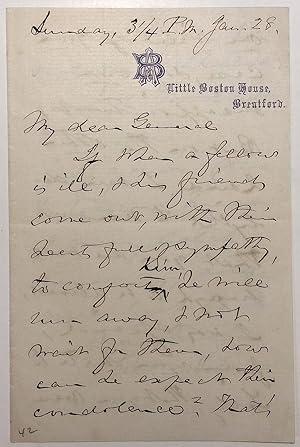 Sunday, 3 1/4 P.M. Jan. 28.
Little Boston House,
Brentford.
My dear General
If when a fellow
is ill, & his friends
come out, with their
hearts full of sympathy,
to comfort him, he will
run away, & not
wait for them, how
can he expect their
condolence? That's
42